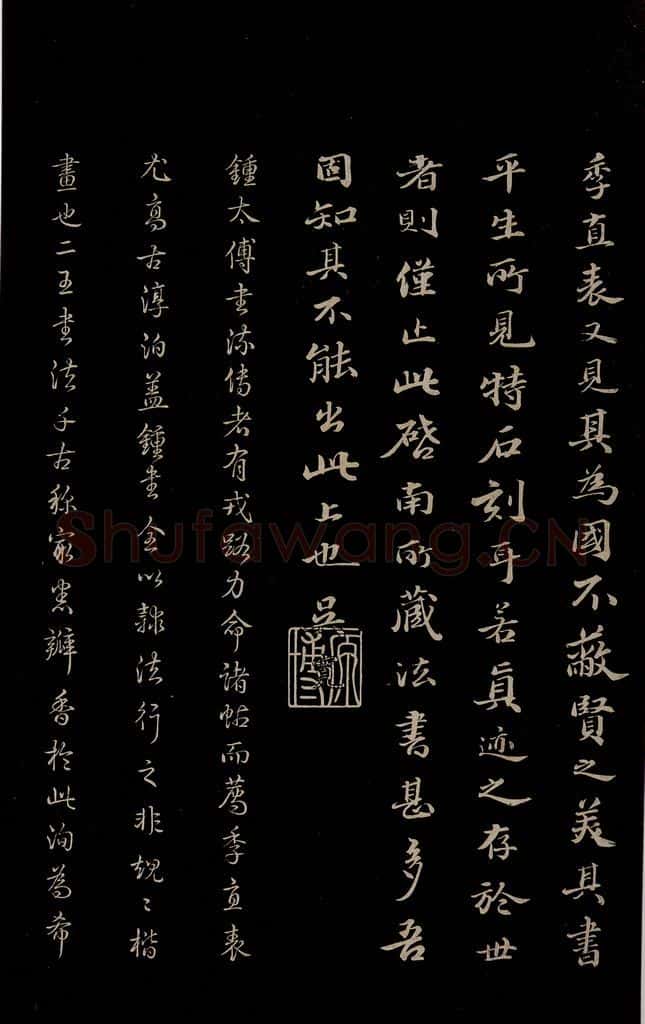 季直表又見其為國不蔽賢之美其書
平生所見特石刻耳若真迹之存於世
者則僅止此啓南所藏法書甚多吾
固知其不能出此上也吳寬
鍾太傅書流傳者有戎路力命諸帖而薦季直表
尤高古淳泊蓋鍾書全以隸法行之非規〻楷
畫也二王書法千古稱宗悉瓣香於此洵為希
Shufawang.CN